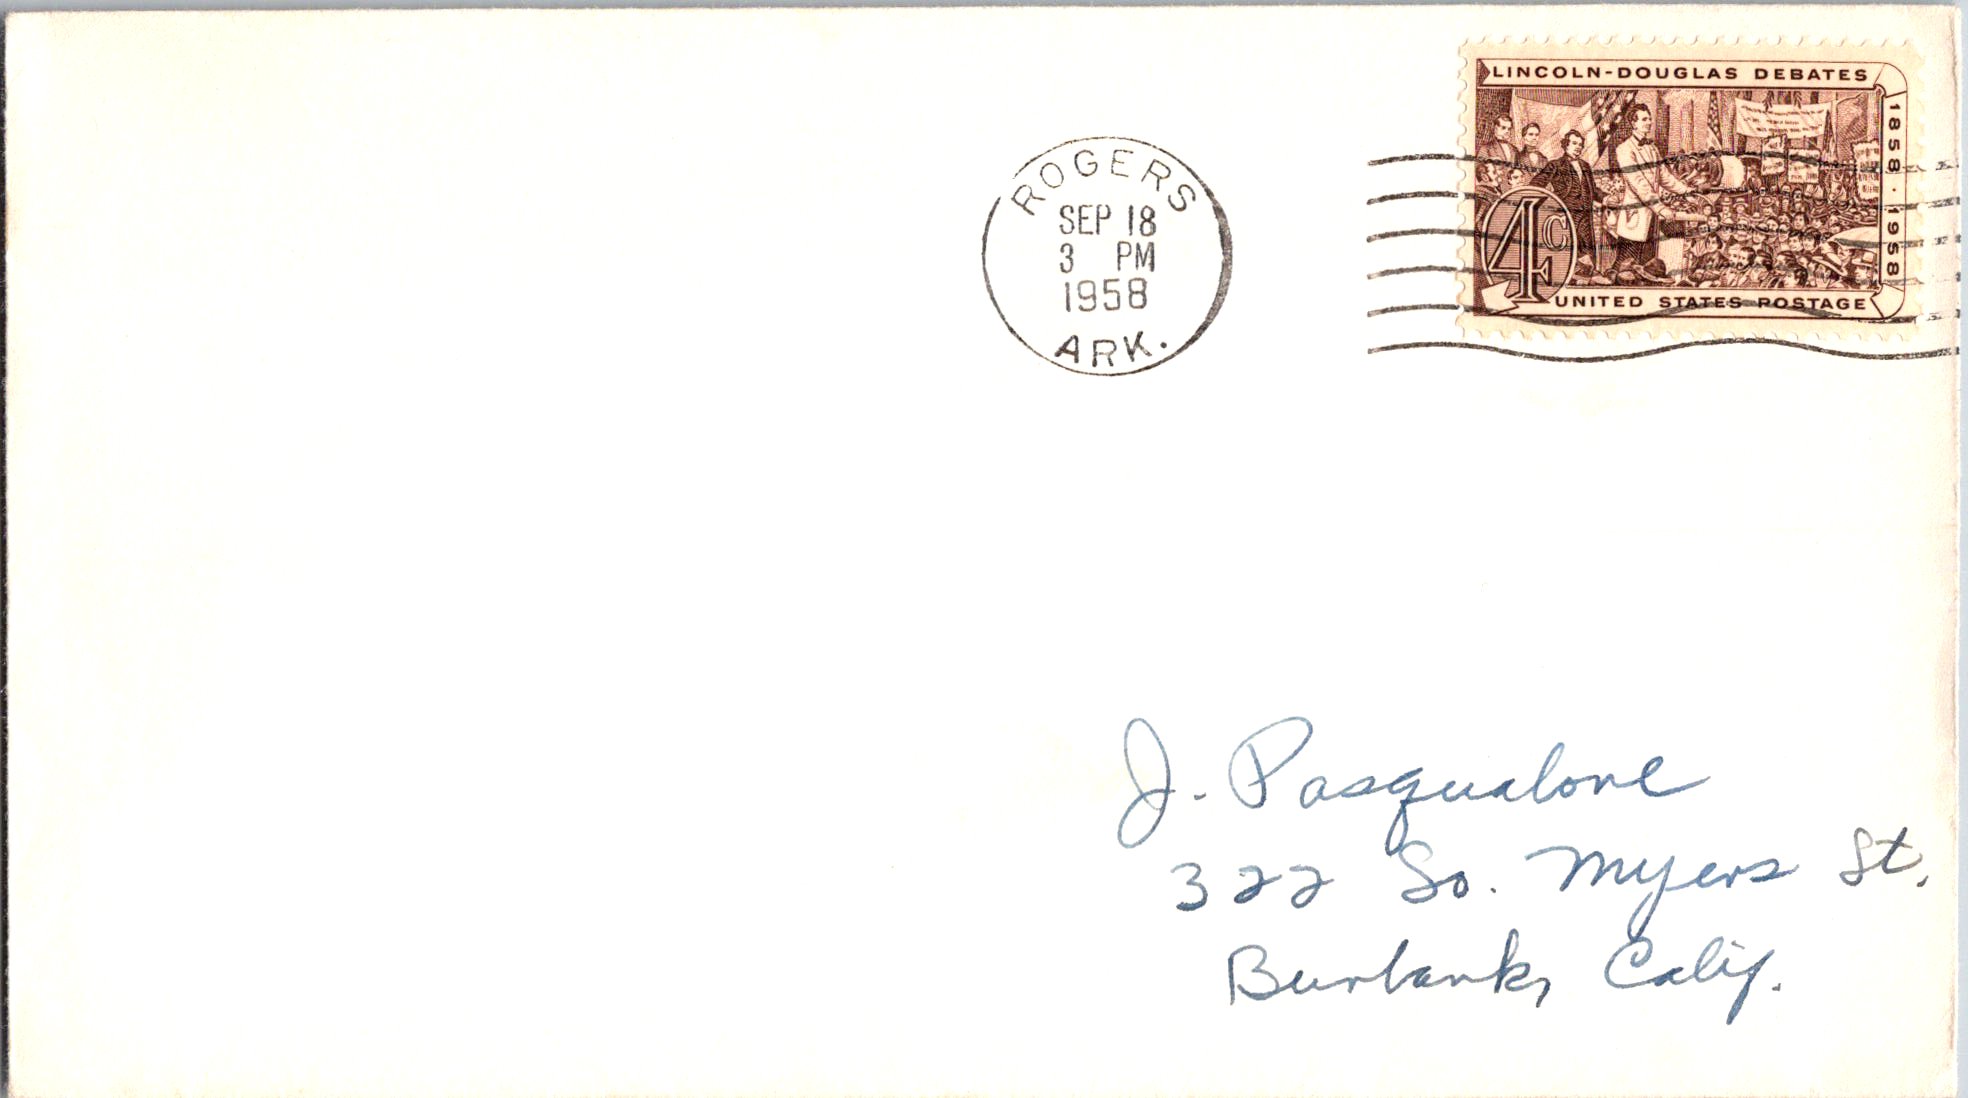 LINCOLN-DOUGLAS DEBATES
1858·1958
4c
UNITED STATES POSTAGE
ROGERS
SEP 18
3 PM
1958
ARK.
J. Pasqualone
322 So. Myers St.
Burbank, Calif.